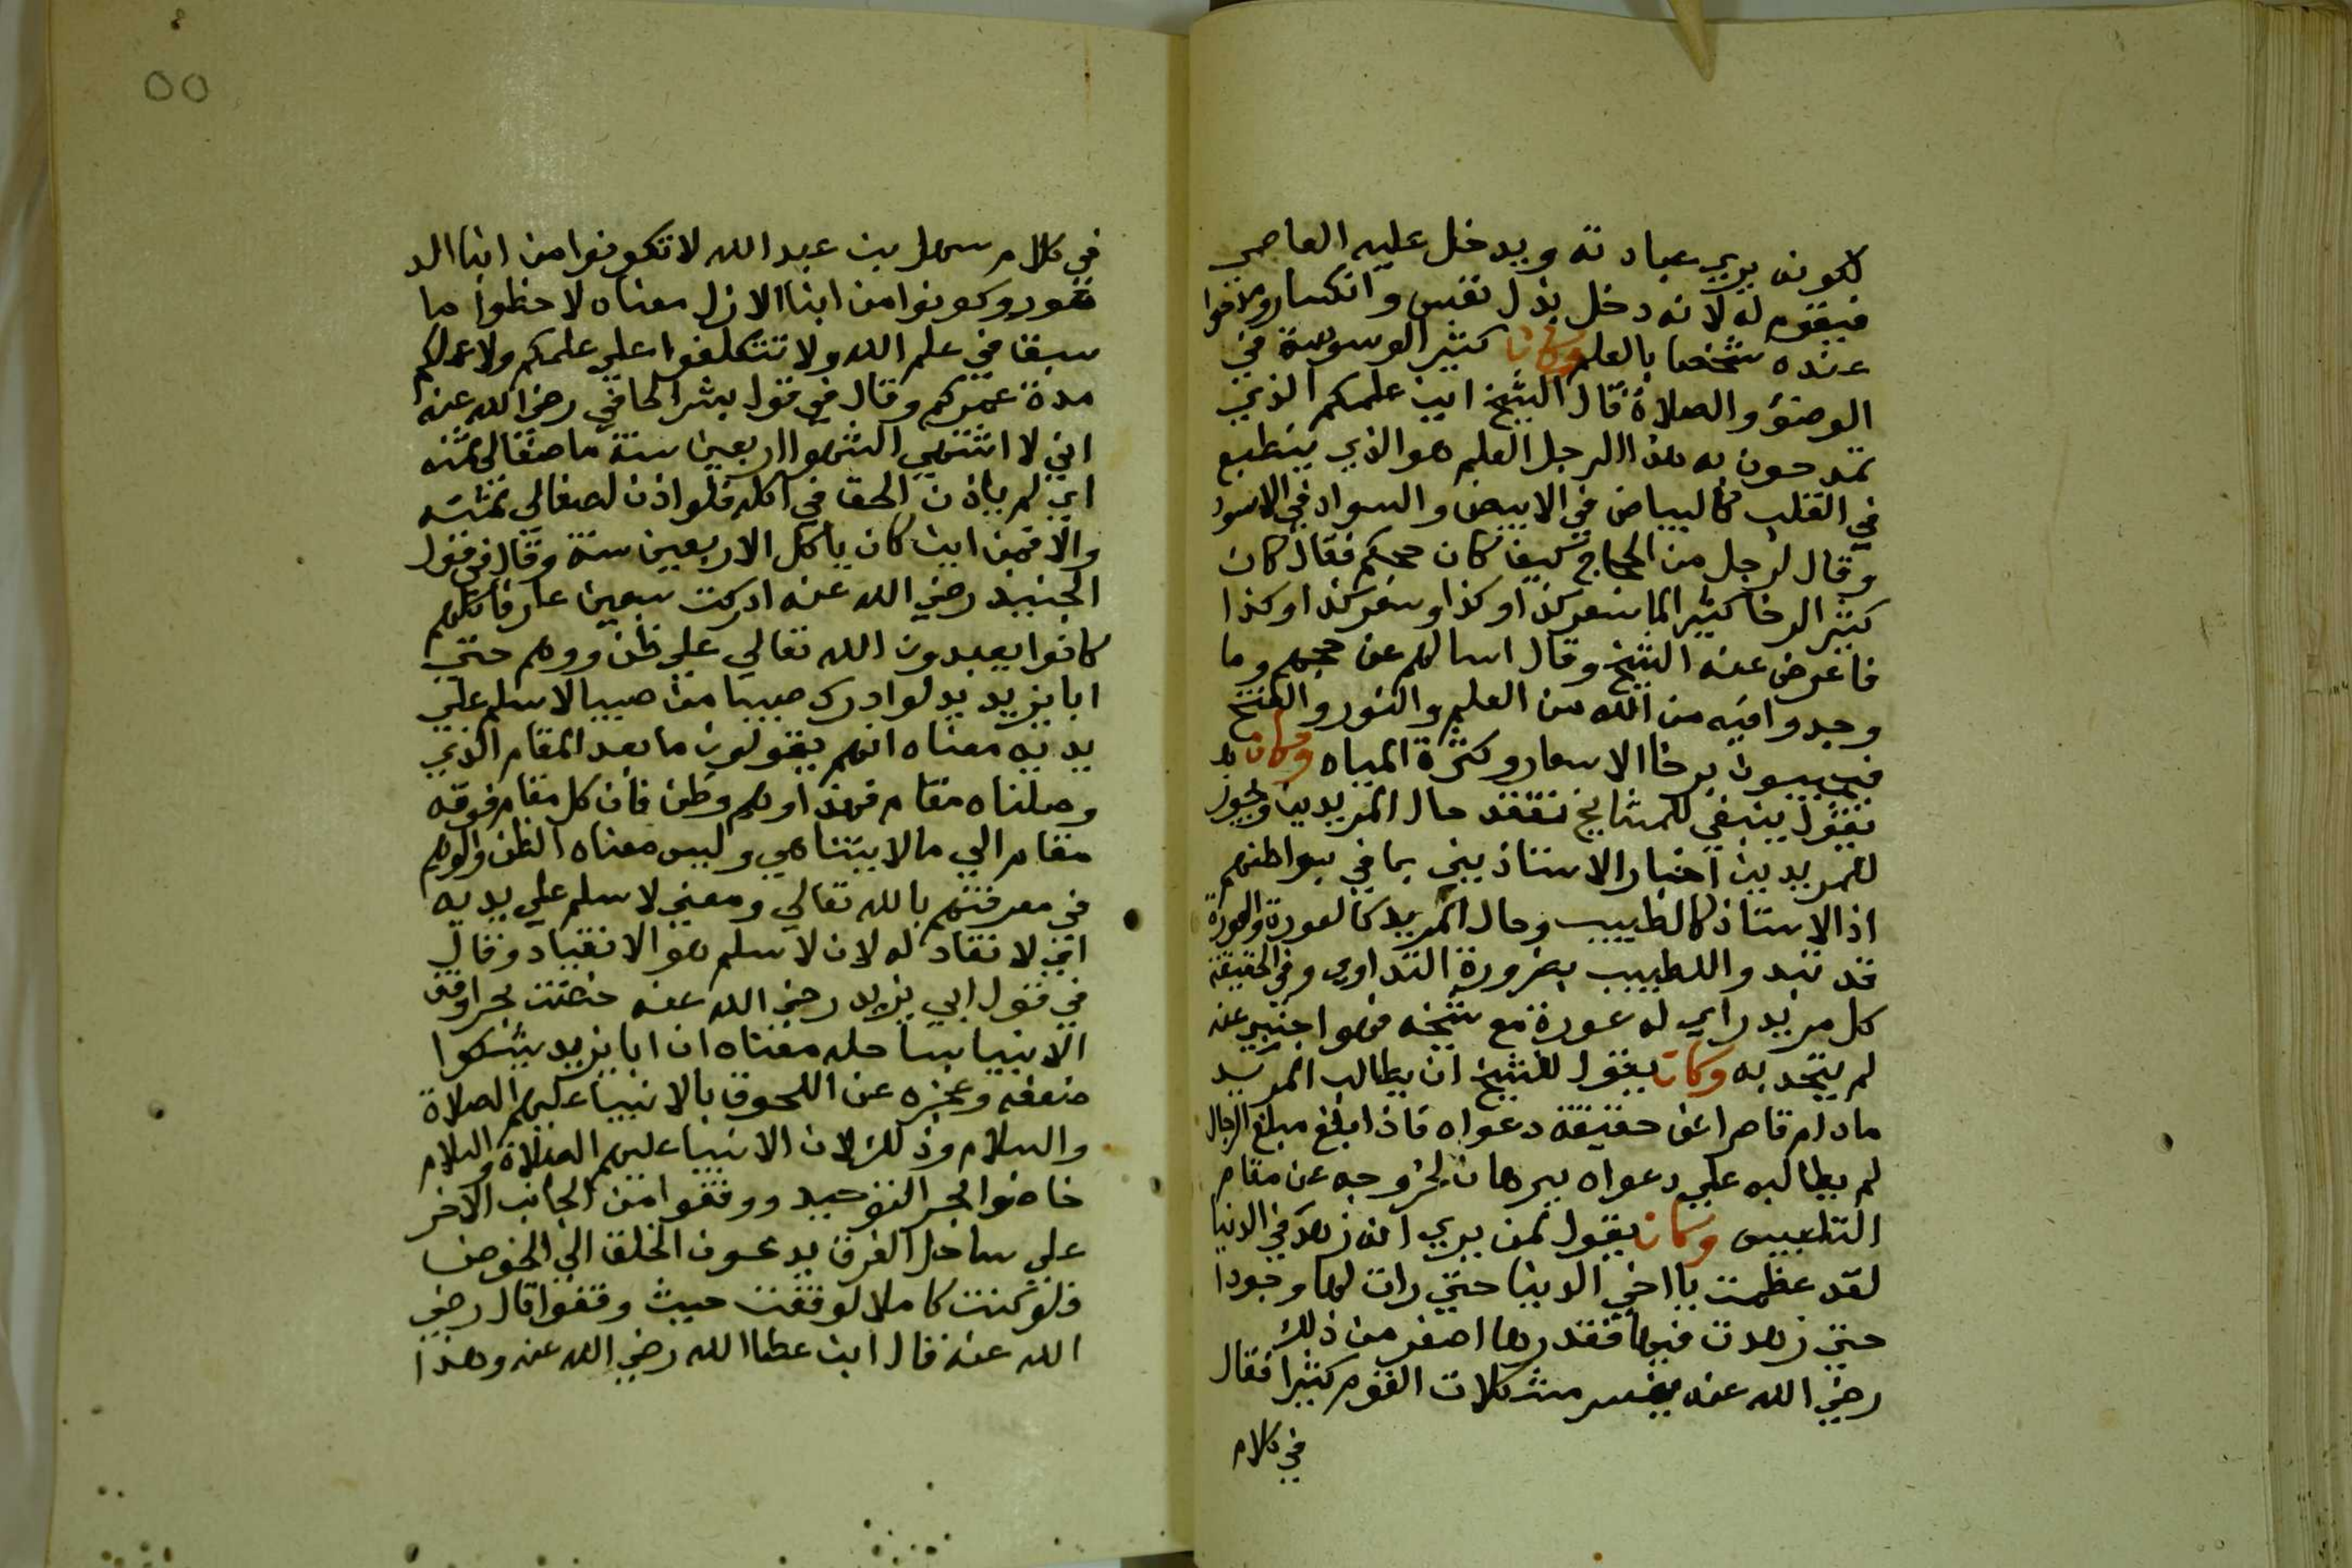 لكونه يري عبادته ويدخل عليه العاصي
فيقوم له لانه دخل بذل نفس وانكسار ومدحوا
عنده شخصا بالعلم وكان كثير الوسوسة في
الوضؤ والصلاة قال الشيخ اين علمكم الذي
تمدحون به هذا الرجل العلم هو الذي ينطبع
في القلب كالبياض في الابيض والسواد في الاسود
وقال لرجل من الحجاج كيف كان حجكم فقال كان
كثير الرخا كثير الما سعر كذا وكذا وسعر كذا وكذا
فاعرض عنه الشيخ وقال اسالهم عن حجهم وما
وجدوا فيه من الله من العلم والنور والفتح
فيجيبون برخا الاسعار وكثرة المياه وكان
يقول ينبغي للمشايخ تفقد حال المريدين ويجوز
للمريدين اخبار الاستاذين بما في بواطنهم
اذ الاستاذ كالطبيب وحال المريد كالعورة والعورة
قد تبدوا للطبيب بضرورة التداوي وفي الحقيقة
كل مريد راي له عورة مع شيخه فهو اجنبي عنه
لم يتحد به وكان يقول للشيخ ان يطالب المريد
مادام قاصرا عن حقيقة دعواه فاذا بلغ مبلغ الرجال
لم يطالبه علي دعواه ببرهان لخروجه عن مقام
التلبيس وكان يقول لمن يري انه زهد في الدنيا
لقد عظمت يا اخي الدنيا حتي رات لها وجودا
حتي زهدت فيها فقدرها اصغر من ذلك
رضي الله عنه يفسر مشكلات القوم كثيرا فقال
في كلام
٥٥
في كلام سهل بن عبد الله لا تكونوا من ابنا الد
هور وكونوا من ابنا الازل معناه لاحظوا ما
سبق في علم الله ولا تتكلفوا علي علمكم ولا عملكم
مدة عمركم وقال في قول بشر الحافي رضي الله عنه
اني لا اشتهي الشوا اربعين سنة ما صفا لي ثمنه
اي لم ياذن الحق في اكله فلو اذن لصفا لي ثمنه
والا فمن اين كان ياكل الاربعين سنة وقال في قول
الجنيد رضي الله عنه ادركت سبعين عارفا كلهم
كانوا يعبدون الله تعالي علي ظن ووهم حتي
ابا يزيد لو ادرك صبيا من صبيا لاسلم علي
يديه معناه انهم يقولون ما بعد المقام الذي
وصلناه مقام فهذا وهم وظن فان كل مقام فوقه
مقام الي ما لا يتناهي وليس معناه الظن والوهم
في معرفتهم بالله تعالي ومعني لاسلم علي يديه
اي لانقاد له لان لاسلم هو الانقياد وقال
في قول ابي يزيد رضي الله عنه خضت بحرا وقف
الانبيا بساحله معناه ان ابا يزيد يشكوا
ضعفه وعجزه عن اللحوق بالانبيا عليهم الصلاة
والسلام وذلك لان الانبيا عليهم الصلاة والسلام
خاضوا بحر التوحيد ووقفوا من الجانب الاخر
علي ساحل الفرق يدعون الخلق الي الخوض
فلو كنت كاملا لوقفت حيث وقفوا قال رضي
الله عنه قال ابن عطا الله رضي الله عنه وهذا